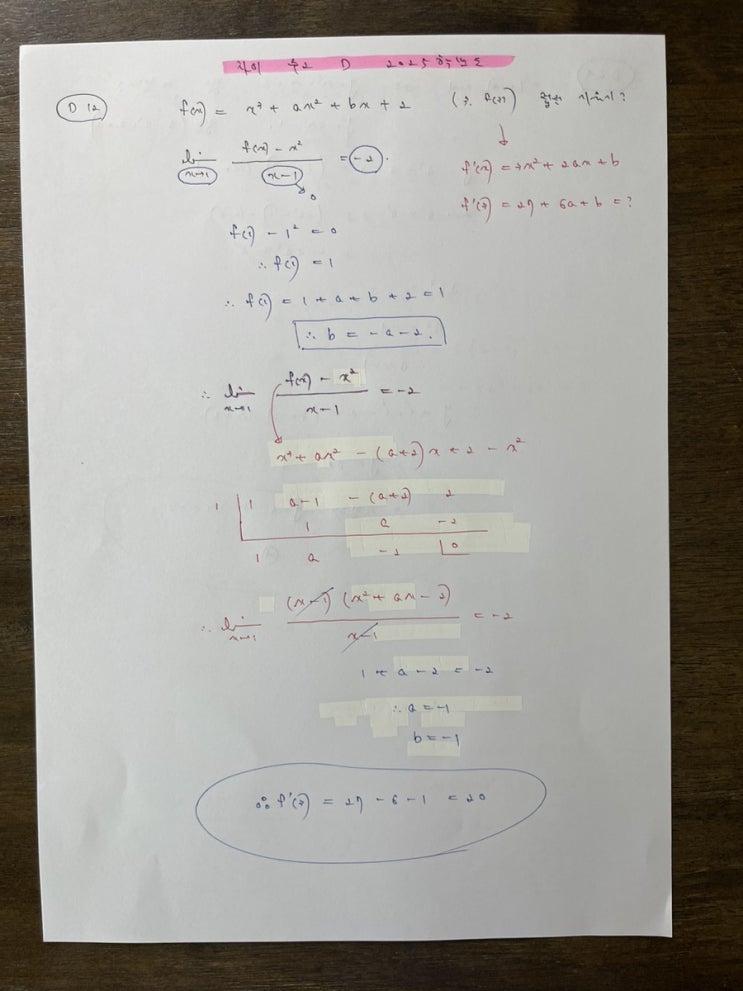 수2 D 2025
D 12
f(x) = x³ + ax² + bx + 2
(3, f(3))
lim x→1 f(x) - x² / x-1 = -2.
0
f'(x) = 3x² + 2ax + b
f'(3) = 27 + 6a + b = ?
f(1) - 1² = 0
∴ f(1) = 1
∴ f(1) = 1 + a + b + 2 = 1
∴ b = -a - 2.
∴ lim x→1 f(x) - x² / x-1 = -2
x³ + ax² - (a+2)x + 2 - x²
1 | 1 a-1 -(a+2) 2
1 a -2
1 a -2 0
∴ lim x→1 (x-1)(x² + ax - 2) / x-1 = -2
1 + a - 2 = -2
∴ a = -1
b = -1
∴ f'(3) = 27 - 6 - 1 = 20